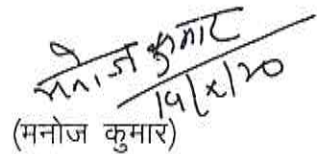 मनोज कुमार
19/x/20
(मनोज कुमार)